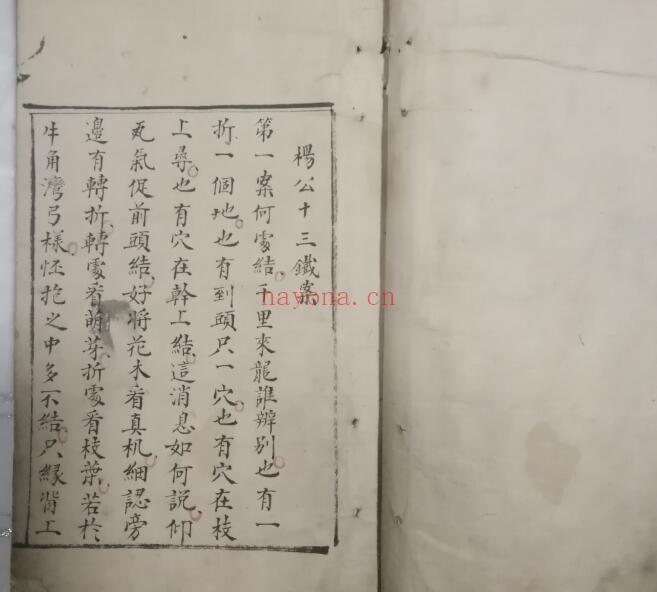 楊公十三鐵案
第一案何處結千里來龍誰辨别也有一
折一個地也有到頭只一穴也有穴在枝
上尋也有穴在幹上結這消息如何說仰
氣促前頭結好將花木看真机細認旁
邉有轉折轉處看萌芽折處看枝葉若於
牛角灣弓樣怀抱之中多不結只緣背上
hayona.cn